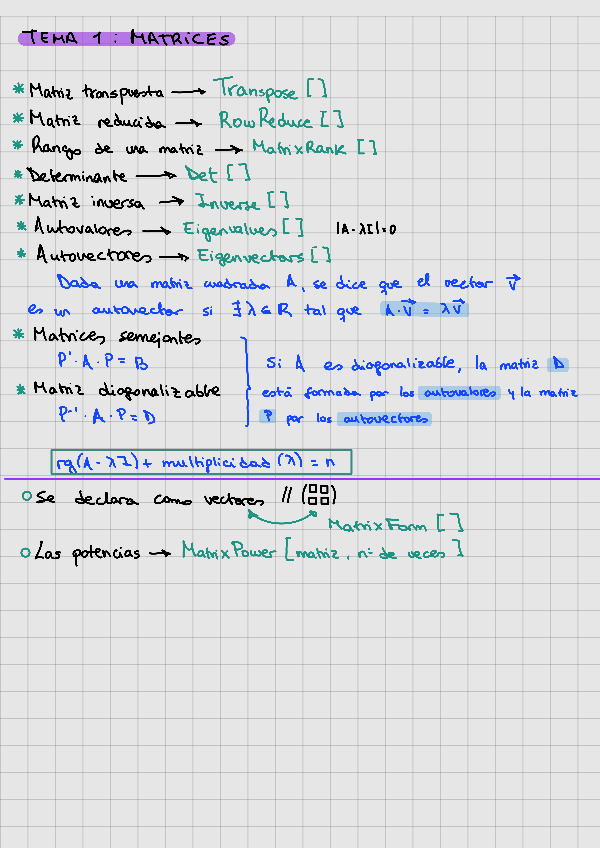 TEMA 1 : MATRICES
* Matriz transpuesta → Transpose [ ]
* Matriz reducida → RowReduce [ ]
* Rango de una matriz → MatrixRank [ ]
* Determinante → Det [ ]
* Matriz inversa → Inverse [ ]
* Autovalores → Eigenvalues [ ] |A - λI| = 0
* Autovectores → Eigenvectors [ ]
Dada una matriz cuadrada A, se dice que el vector v⃗
es un autovector si ∃ λ ∈ R tal que A · v⃗ = λ v⃗
* Matrices semejantes
P⁻¹ · A · P = B
* Matriz diagonalizable
P⁻¹ · A · P = D
Si A es diagonalizable, la matriz D
está formada por los autovalores y la matriz
P por los autovectores
rg(A - λI) + multiplicidad (λ) = n
○ Se declara como vectores // (□□□□)
MatrixForm [ ]
○ Las potencias → MatrixPower [matriz, nº de veces ]